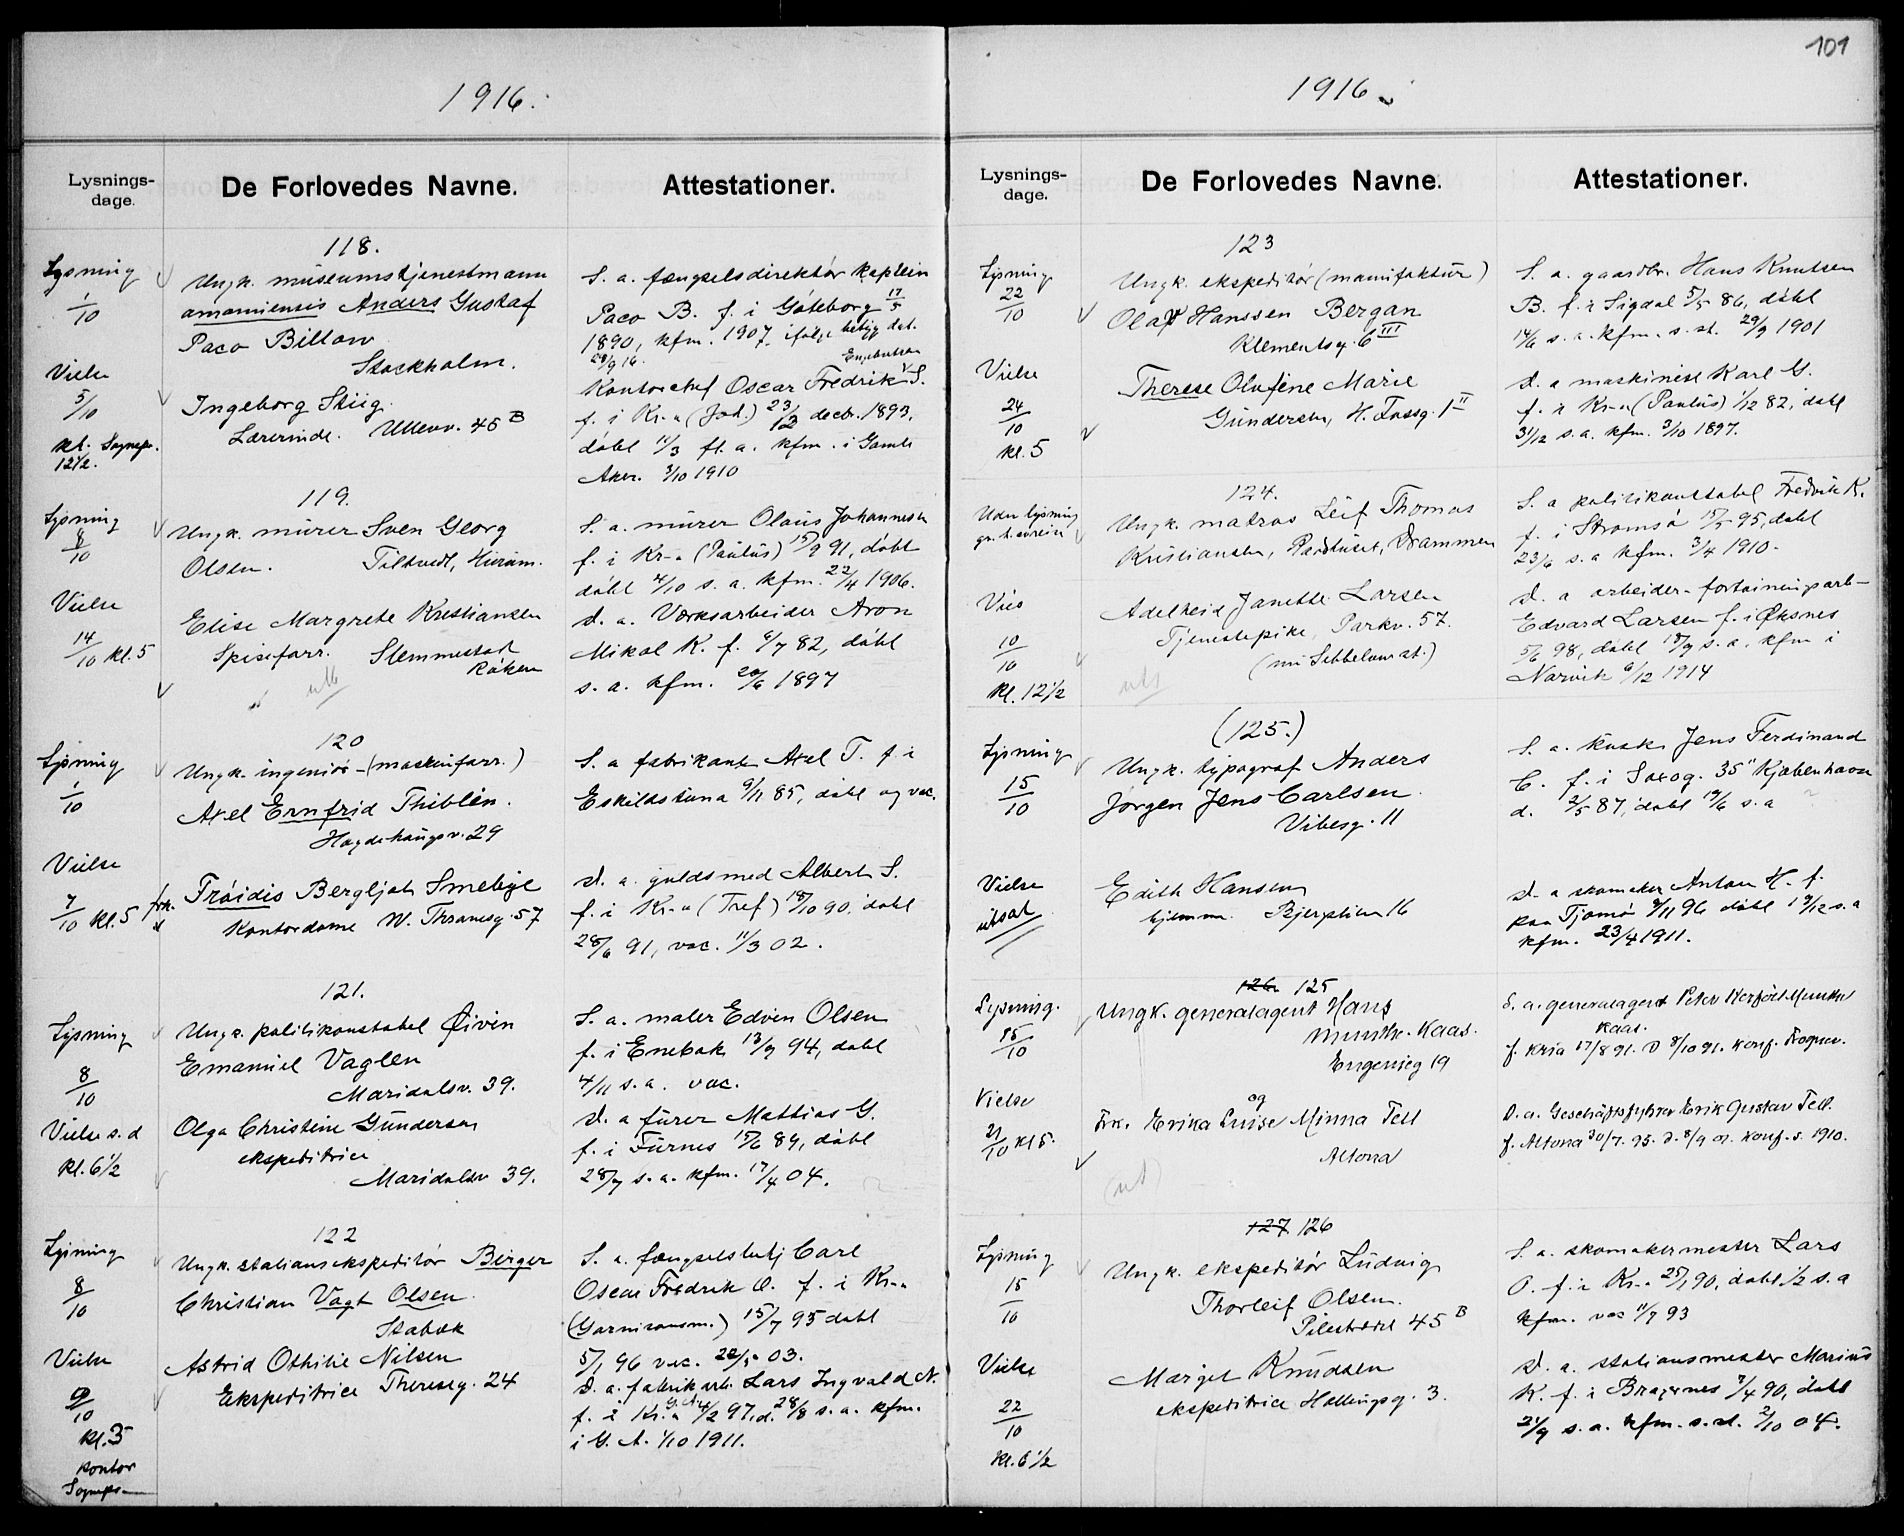 101
1916.
Lysnings-
dage.
De Forlovedes Navne.
Attestationer.
118.
Lysning
1/10
Ungk. museumstjenestmann
amanuensis Anders Gustaf
Paco Billow
Stockholm.
S. a. fængselsdirektør kaptein
Paco B. f. i Göteborg 17/5
1890, kfm. 1907, ifølge
28/9 16.
Vielse
5/10
kl. Sognepr.
12 1/2.
Ingeborg Stiig
Lærerinde. Ullevv. 45 B
Kontorchef Oscar Fredrik S.
f. i Kr.a 23/12 decbr. 1893,
døbt 11/3 fl. a. kfm. i Gamle
Aker. 2/10 1910
119.
Lysning
8/10
Ungk. murer Sven Georg
Olsen. Tiltvedt, Hurum.
S. a. murer Olaus Johannesen
f. i Kr.a (Paulus) 15/9 91, døbt
døbt 4/10 s. a. kfm. 22/4 1906.
Vielse
14/10 kl. 5
Elise Margrete Kristiansen
Spisefarr. Slemmestad
Røken
D. a. Værksarbeider Aron
Mikal K. f. 6/7 82, døbt
s. a. kfm. 20/6 1897
120
Lysning
1/10
Ungk. ingeniør - (maskinfarr.)
Axel Ernfrid Thiblin.
Hagdehaugsv. 29
S. a fabrikant Axel T. f i
Eskildstuna 9/11 85, døbt og vac.
Vielse
7/10 kl. 5
frk. Frøidis Bergljot Smebye
Kontordame W. Thranesg. 57
D. a. guldsmed Albert S.
f. i Kr.a (Tref) 18/10 90, døbt
28/6 91, vac. 11/3 02.
121.
Lysning
8/10
Ungk. politikonstabel Øivin
Emanuel Vaglen
Maridalsv. 39.
S. a. maler Edvin Olsen
f. i Enebak 13/9 94, døbt
4/11 s. a. vac.
Vielse s. d
kl. 6 1/2
Olga Christine Gundersen
ekspeditrice
Maridalsv 39.
D. a furer Mattias G.
f. i Furnes 15/6 89, døbt
28/7 s. a. kfm. 17/4 04.
122
Lysning
8/10
Ungk. stationsekspeditør Birger
Christian Vagt Olsen.
Stabæk
S. a. fængselsbetj Carl
Oscar Fredrik O. f. i Kr.a
(Garnisonsm.) 15/7 95 døbt
5/1 96 vac. 22/5 03.
Vielse
9/10
kl. 5
kontor
Astrid Othilie Nilsen
Ekspeditrice Thereseg. 24
D. a. fabrikarb. Lars Ingvald N.
f. i Kr.a 4/2 97, d. 28/8 s. a. kfm.
i G. A. 1/10 1911.
1916.
Lysnings-
dage.
De Forlovedes Navne.
Attestationer.
123
Lysning
22/10
Ungk. ekspeditør (manufaktur)
Olaf Hanssen Bergan
Klementsg. 6 III
S. a. gaardbr. Hans Knutsen
B. f. i Sigdal 5/5 86, døbt
14/6 s. a. kfm. s. st. 29/9 1901
Vielse
24/10
kl. 5
Therese Olufine Marie
Gundersen, H. Fossg. 1 II
D. a maskinist Karl G.
f. i Kr.a (Paulus) 1/12 82, døbt
31/12 s. a. kfm. 3/10 1897.
124.
Uden lysning
Ungk. matros Leif Thomas
Kristiansen, Drammen
S. a politikonstabel Fredrik K.
f. i Strømsø 15/5 95, døbt
23/6 s. a kfm. 3/4 1910.
Vies
10/10
kl. 12 1/2
Adelheid Janette Larsen
Tjenestepike, Parkv. 57.
D. a arbeider
Edvard Larsen f. i Øksnes
5/6 98, døbt 18/9 s. a. kfm i
Narvik 6/12 1914
(125.)
Lysning
15/10
Ungk. typograf Anders
Jørgen Jens Carlsen.
Vibesg. 11
S. a. kusk Jens Ferdinand
C. f. i Saxog. 35 Kjøbenhavn
d. 2/5 87, døbt 19/6 s. a
Vielse
utsat
Edith Hansen
hjemme. Bjerglien 16
D. a skomaker Anton H. f.
paa Tjømø 9/11 96 døbt 13/12 s. a
kfm. 23/4 1911.
126. 125
Lysning.
15/10
Ungk. generalagent Hans
Munthe-Kaas.
Eugeniesg 19
S. a. generalagent Peter Munthe
Kaas.
f. Kria 17/8 91. D 8/10 91. Konf. Frogner.
Vielse
21/10 kl 5.
og
Frk. Erika Luise Minna Tell
Altona
D. a. Geschäftsfyhrer Erik Gustav Tell.
f. Altona 30/7. 95. d. 8/9 01. Konf. s. 1910.
127 126
Lysning
15/10
Ungk. ekspeditør Ludvig
Thorleif Olsen.
Pilestrædet 45 B
S. a. skomakermester Lars
O. f. i Kr.a 25/1 90, døbt 1/2 s. a
kfm. vac 11/7 93
Vielse
22/10
kl. 6 1/2
Margit Knudsen
ekspeditrice Hallingsg. 3.
D. a. stationsmester Marius
K. f. i Bragernes 7/4 90, døbt
21/9 s. a. kfm. s. st. 2/10 04.